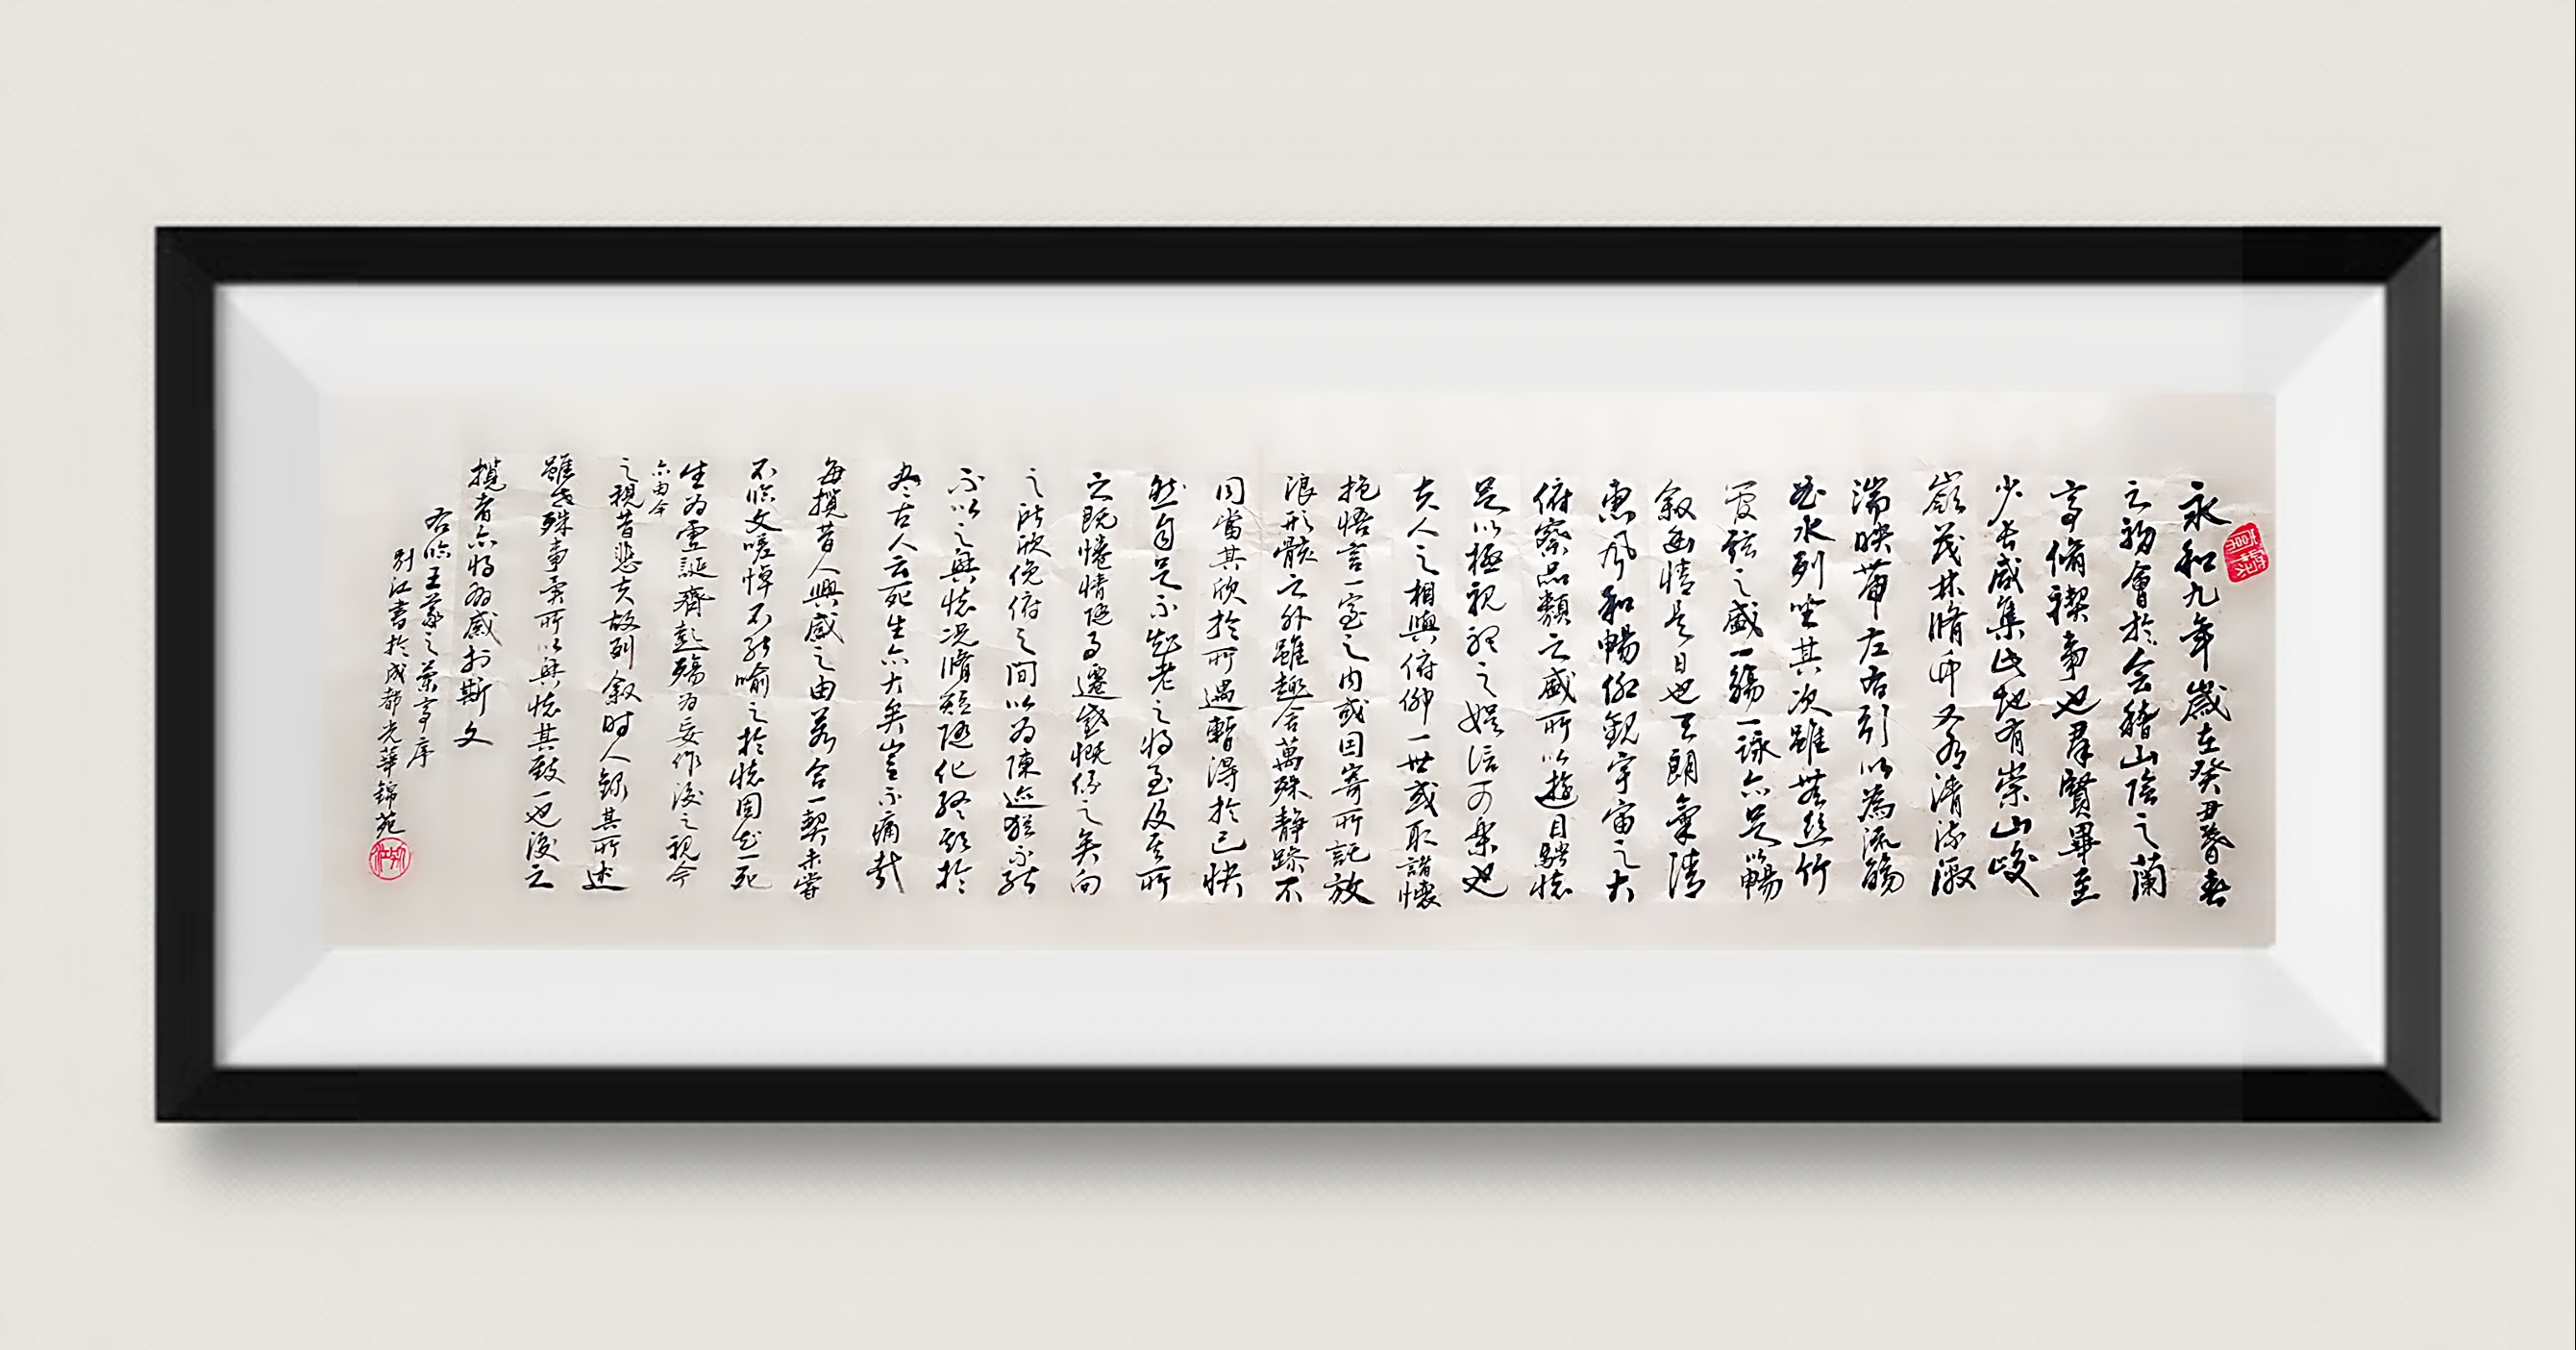 永和九年歲在癸丑暮春
之初會於會稽山陰之蘭
亭脩禊事也羣賢畢至
少長咸集此地有崇山峻
嶺茂林脩竹又有清流激
湍映帶左右引以為流觴
曲水列坐其次雖無絲竹
管弦之盛一觴一詠亦足以暢
叙幽情是日也天朗氣清
惠風和暢仰觀宇宙之大
俯察品類之盛所以遊目騁懷
足以極視聽之娛信可樂也
夫人之相與俯仰一世或取諸懷
抱悟言一室之內或因寄所託放
浪形骸之外雖趣舍萬殊靜躁不
同當其欣於所遇暫得於己快
然自足不知老之將至及其所
之既惓情隨事遷感慨係之矣向
之所欣俛仰之間以為陳迹猶不能
不以之興懷況脩短隨化終期於
盡古人云死生亦大矣豈不痛哉
每攬昔人興感之由若合一契未嘗
不臨文嗟悼不能喻之於懷固知一死
生為虛誕齊彭殤為妄作後之視今
亦由今
之視昔悲夫故列叙時人錄其所述
雖世殊事異所以興懷其致一也後之
攬者亦將有感於斯文
右臨王羲之蘭亭序
別江書於成都光華錦苑